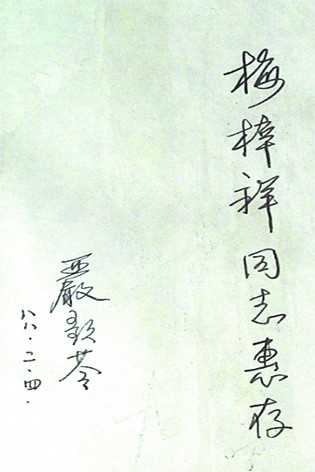 梅梓祥同志惠存
嚴歌苓
八八.二.四.